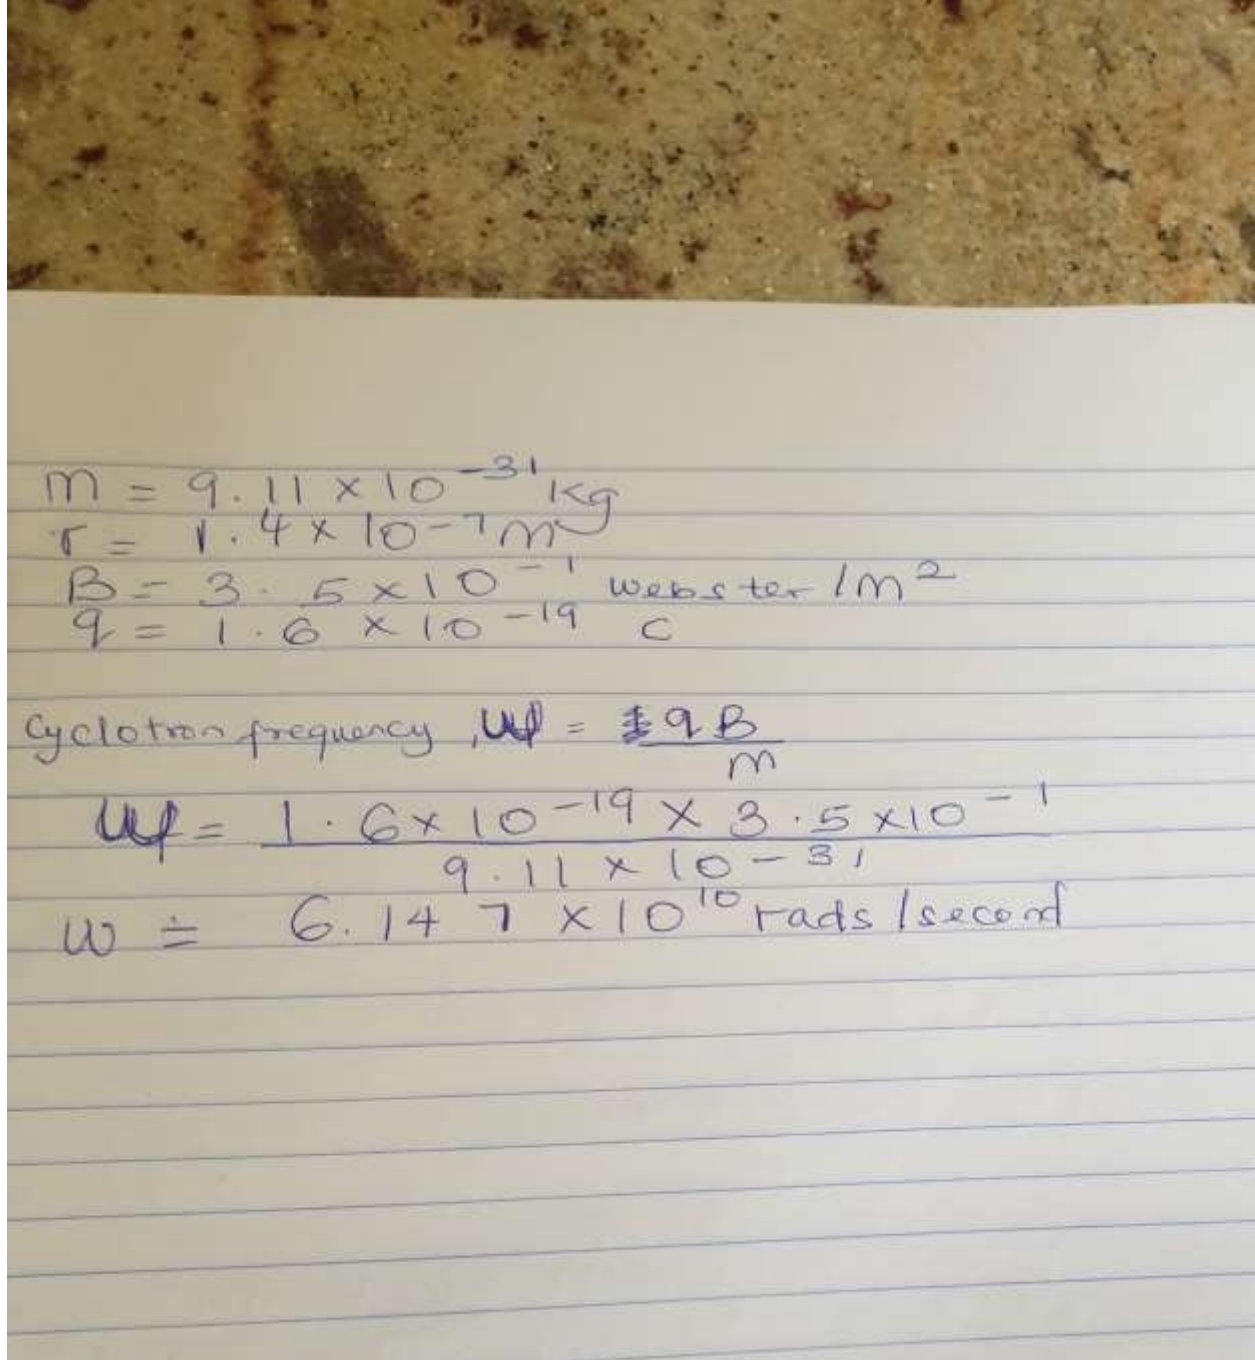 m = 9.11 × 10^-31 kg
r = 1.4 × 10^-7 m
B = 3.5 × 10^-1 webster /m^2
q = 1.6 × 10^-19 C
Cyclotron frequency, ω = qB/m
ω = 1.6 × 10^-19 × 3.5 × 10^-1 / 9.11 × 10^-31
ω = 6.147 × 10^10 rads /second